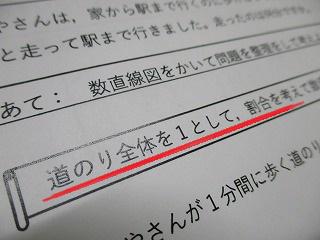 やさんは、家から駅まで行くのに
と走って駅まで行きました。走ったのは何分ですか。
あて： 数直線図をかいて問題を整理をして
道のり全体を１として，割合を考えて
やさんが１分間に歩く道のり